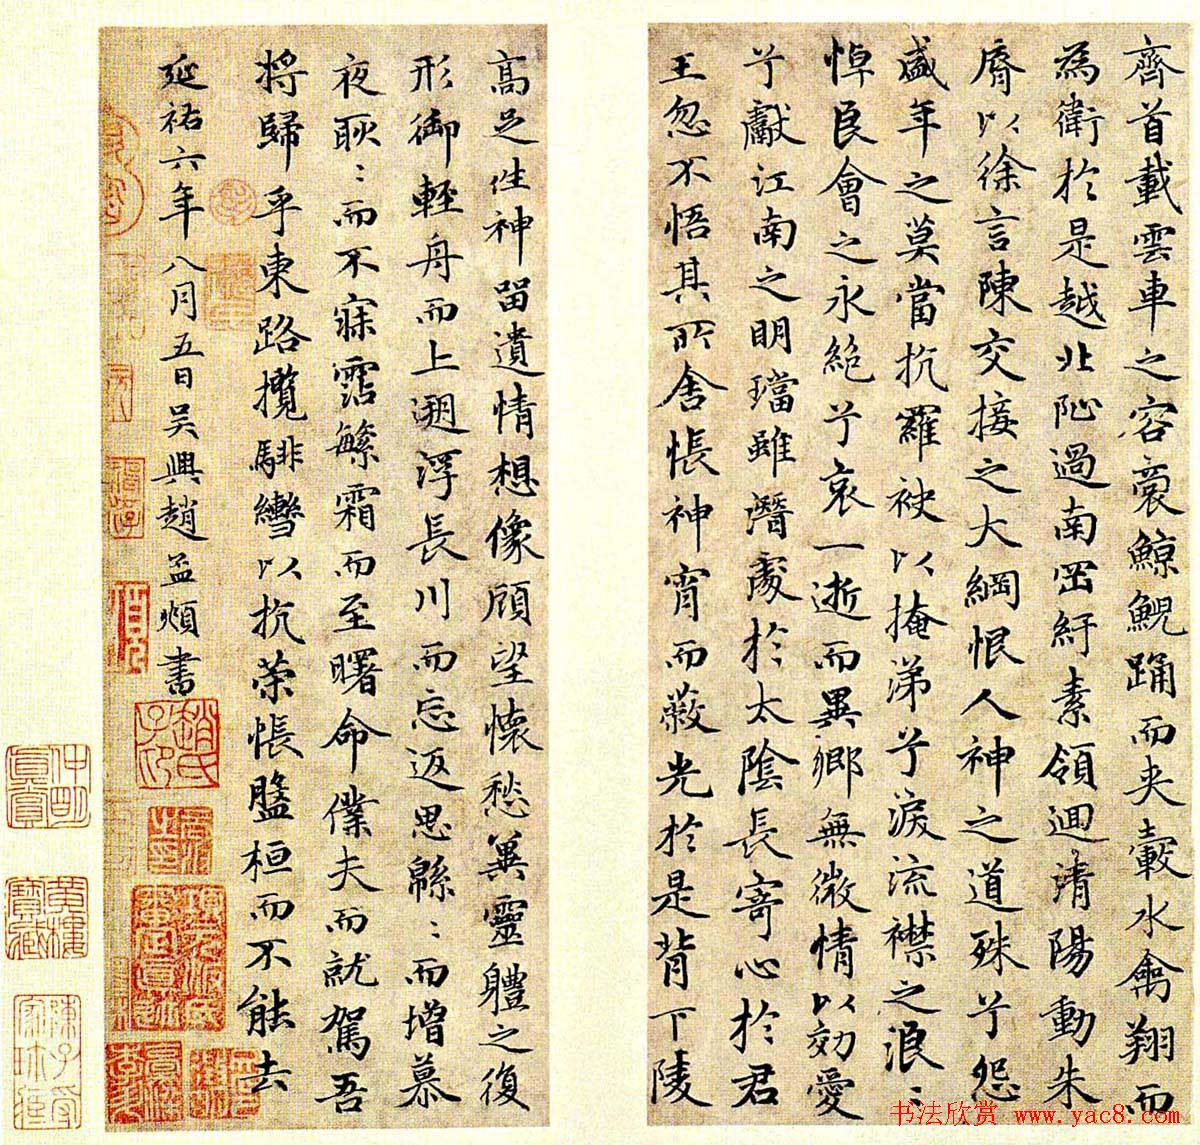 齊首載雲車之容裔鯨鯢踊而夾轂水禽翔而
為衛於是越北沚過南岡紆素領迴清陽動朱
脣以徐言陳交接之大綱恨人神之道殊兮怨
盛年之莫當抗羅袂以掩涕兮淚流襟之浪〻
悼良會之永絕兮哀一逝而異鄉無微情以効愛
兮獻江南之明璫雖潛處於太陰長寄心於君
王忽不悟其所舍悵神宵而蔽光於是背下陵
高足往神留遺情想像顧望懷愁冀靈體之復
形御輕舟而上遡浮長川而忘返思緜〻而增慕
夜耿〻而不寐霑繁霜而至曙命僕夫而就駕吾
將歸乎東路攬騑轡以抗策悵盤桓而不能去
延祐六年八月五日吳興趙孟頫書
趙氏子印
书法欣赏 www.yac8.com